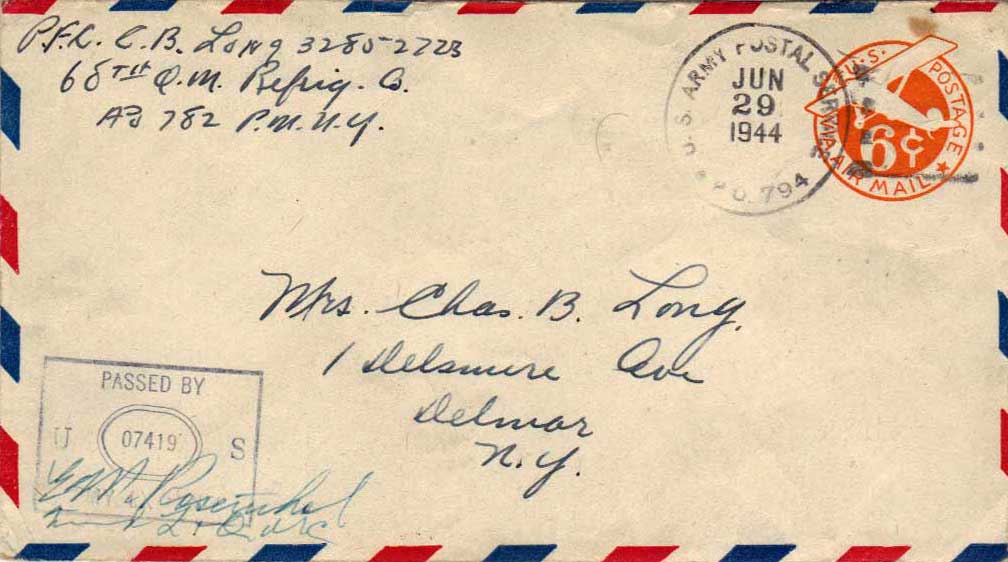 P.F.C. C.B. Long 32852723
68TH Q.M. Refrig. Co.
APO 782 P.M.N.Y.
U.S. ARMY POSTAL SERVICE
JUN
29
1944
A.P.O. 794
U.S. POSTAGE
6¢
VIA AIR MAIL
Mrs. Chas. B. Long.
1 Delsmere Ave
Delmar
N.Y.
PASSED BY
U 07419 S